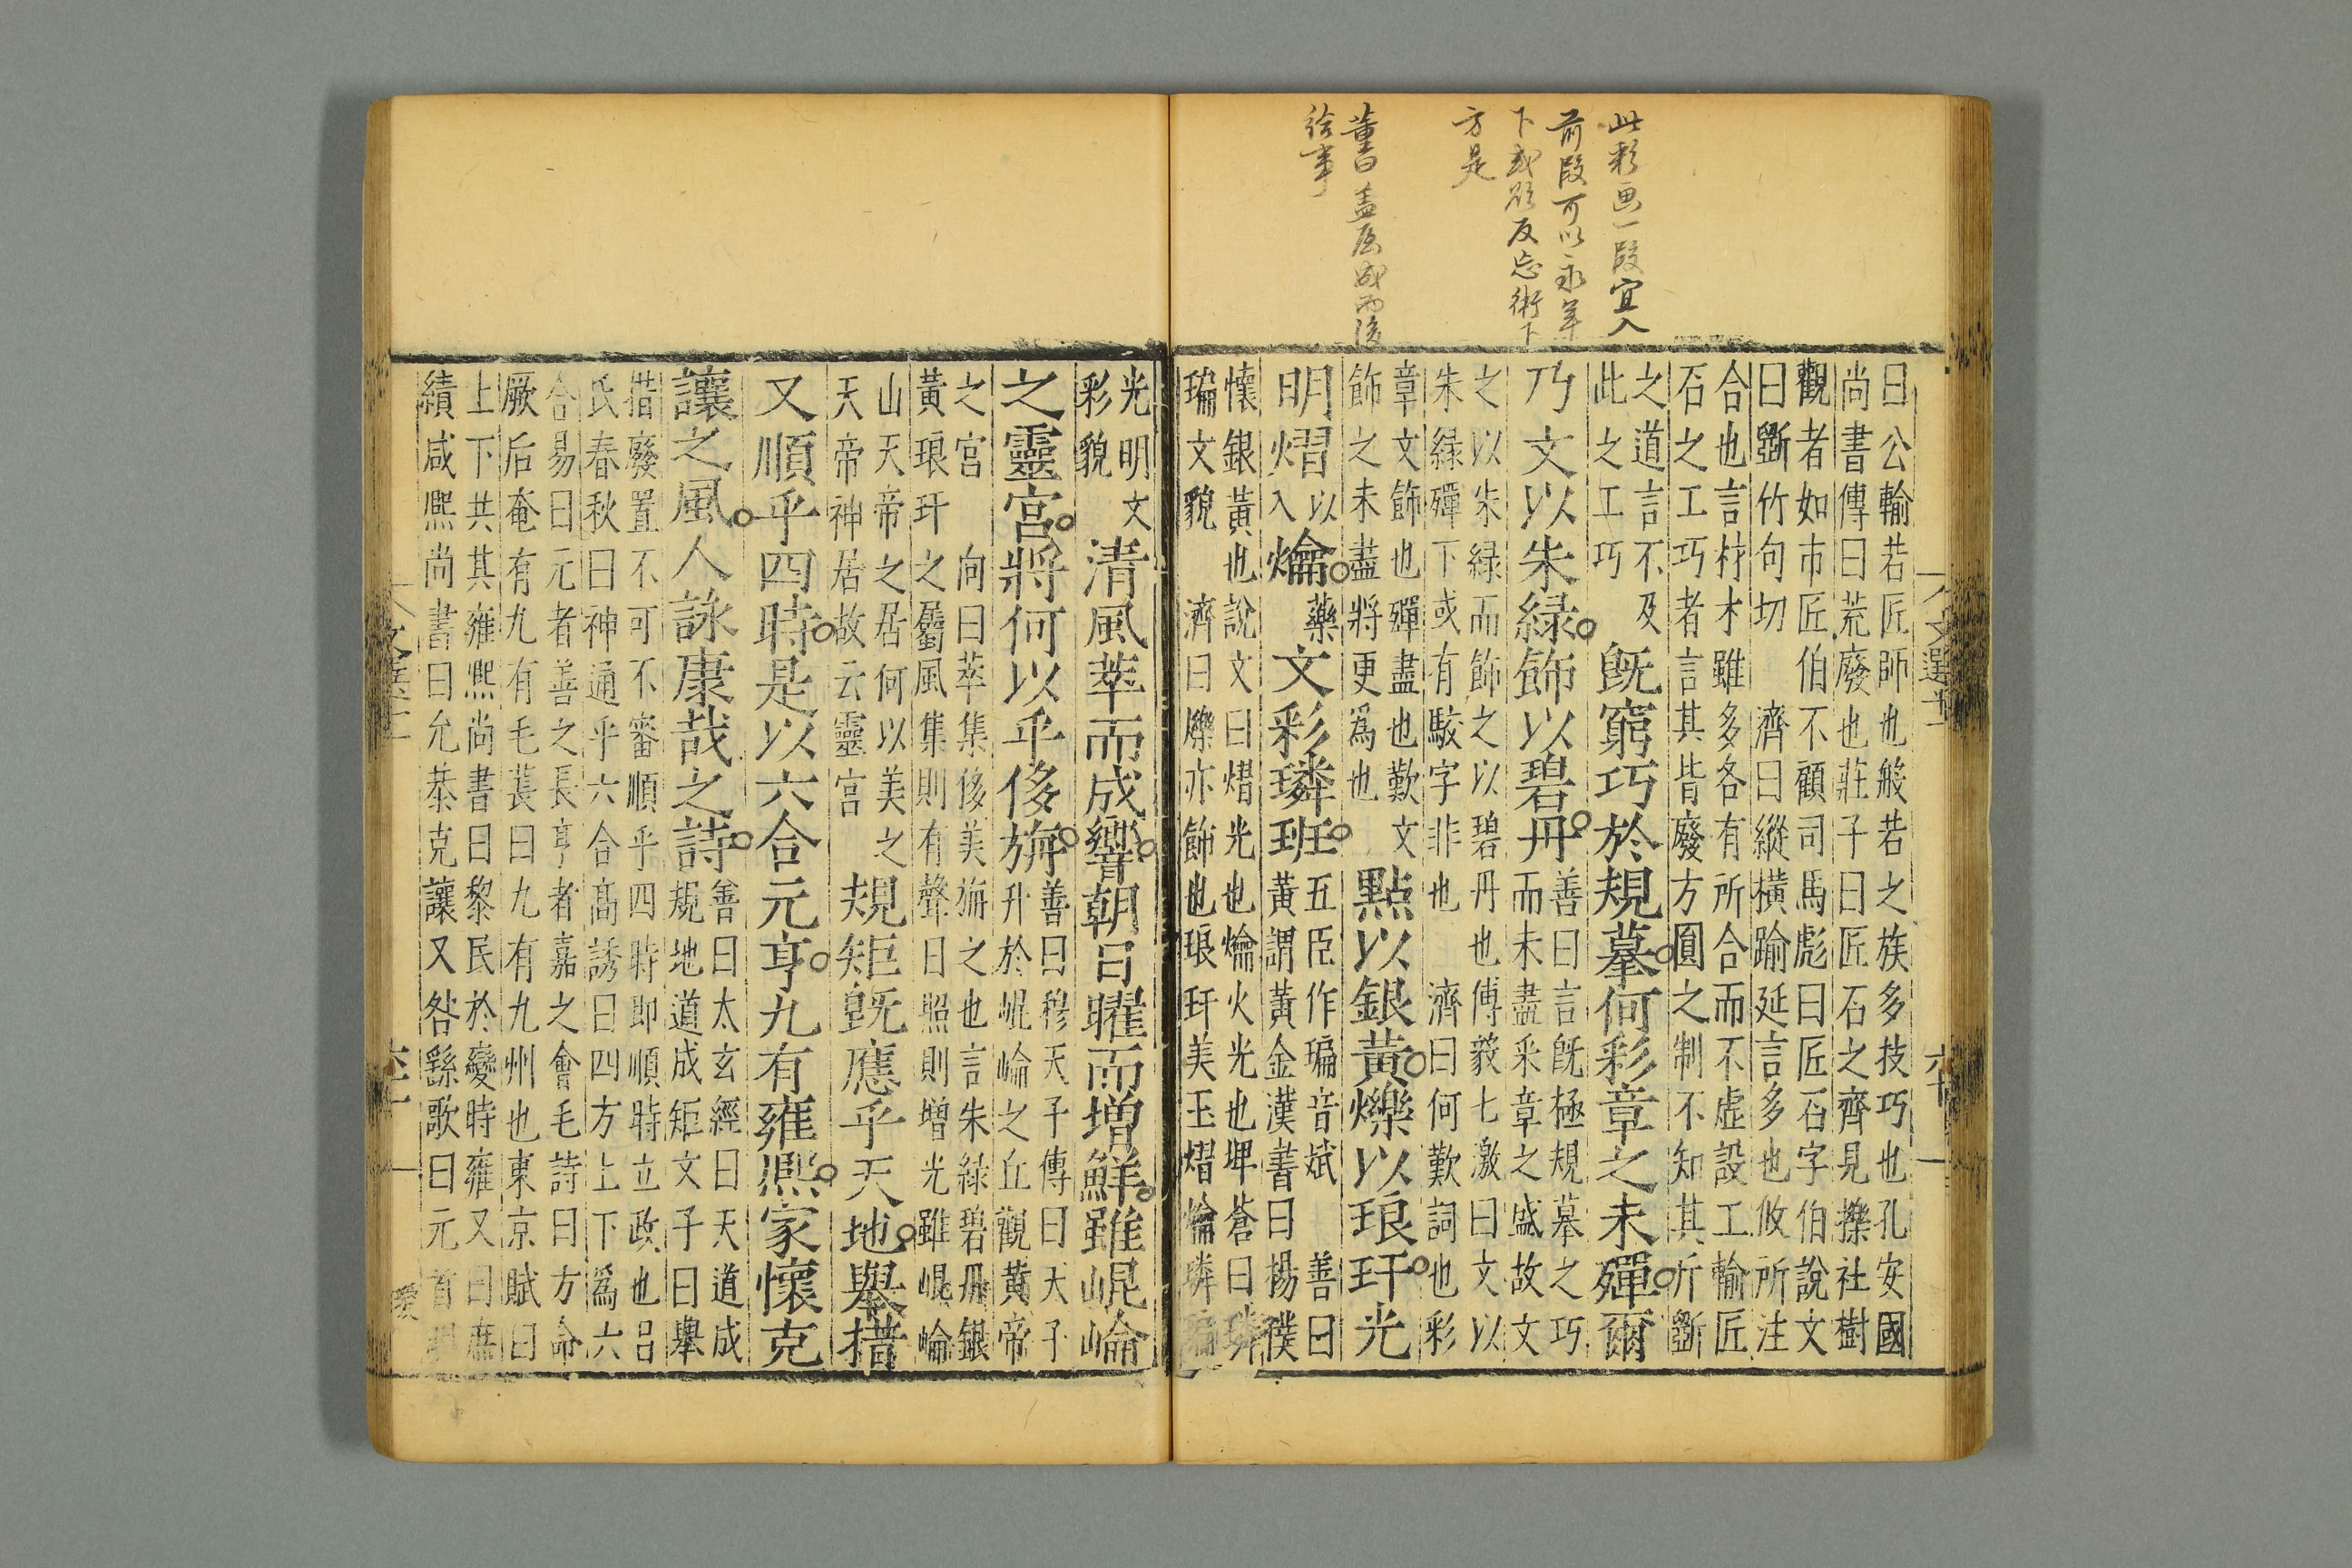 此彩画一段宜入
前段可以永年
下或顧反忘術下
方是
董曰蓋屋成而後
繪事
曰公輸若匠師也般若之族多技巧也孔安國
尚書傳曰荒廢也莊子曰匠石之齊見櫟社樹
觀者如市匠伯不顧司馬彪曰匠石字伯說文
曰斵竹句切 濟曰縱橫踰延言多也攸所注
合也言材木雖多各有所合而不虛設工輸匠
石之工巧者言其皆廢方圓之制不知其所斵
之道言不及
此之工巧
旣窮巧於規摹何彩章之未殫爾
巧文以朱綠飾以碧丹
善曰言旣極規摹之巧
而未盡采章之盛故文
之以朱綠而飾之以碧丹也傅毅七激曰文以
朱綠殫下或有駮字非也 濟曰何歎詞也彩
章文飾也殫盡也歎文
飾之未盡將更爲也
點以銀黃爍以琅玕光
明熠以入爚藥文彩璘班
五臣作㻞音斌 善曰
黃謂黃金漢書曰楊僕
懷銀黃也說文曰熠光也爚火光也埤蒼曰璘
㻞文貌 濟曰爍亦飾也琅玕美玉熠爚璘㻞
光明文
彩貌
清風萃而成響朝日曜而增鮮雖崐崘
之靈宮將何以乎侈旃
善曰穆天子傳曰天子
升於崐崘之丘觀黃帝
之宮 向曰萃集侈美旃之也言朱綠碧丹銀
黃琅玕之屬風集則有聲日照則增光雖崐崘
山天帝之居何以美之
天帝神居故云靈宮
規矩旣應乎天地舉措
又順乎四時是以六合元亨九有雍熙家懷克
讓之風人詠康哉之詩
善曰太玄經曰天道成
規地道成矩文子曰舉
措廢置不可不審順乎四時卽順時立政也呂
氏春秋曰神通乎六合高誘曰四方上下爲六
合易曰元者善之長亨者嘉之會毛詩曰方命
厥后奄有九有毛萇曰九有九州也東京賦曰
上下共其雍熙尚書曰黎民於變時雍又曰庶
績咸熙尚書曰允恭克讓又咎繇歌曰元首
文選十一
六十
文選十一
六十一